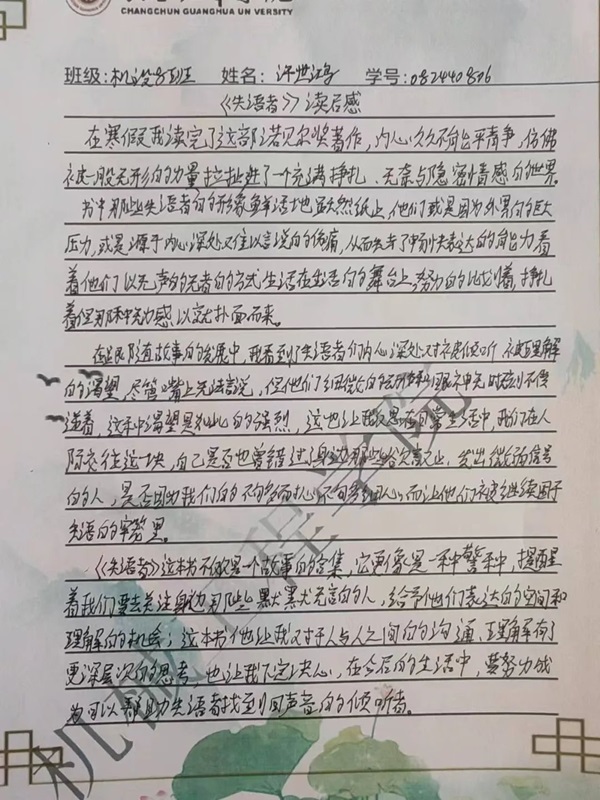 CHANGCHUN GUANGHUA UNIVERSITY
班级:机设 班 姓名: 许世鸿 学号:082440806
《失语者》读后感
在寒假我读完了这部诺贝尔奖著作，内心久久不能平静，仿佛
被一股无形的力量拉扯进了一个充满挣扎、无奈与隐密情感的世界。
书中那些失语者的形象鲜活地显然纸上，他们或是因为外界的巨大
压力，或是源于内心深处难以言说的伤痛，从而失去了表达的能力看
着他们以无声的方式生活在生活的舞台上努力的比划着，挣扎
着但那种无力感 以就扑面而来。
在跟随故事的发展中，我看到了失语者们内心深处对被倾听、被理解
的渴望，尽管嘴上无法言说，但他们细微的动作眼神无时刻不传
递着，这种渴望是如此的强烈，这也让我思在日常生活中，我们在人
际交往这一块，自己是否也曾错过身边那些欲言又止、发出微弱信号
的人，是否因为我们的不够耐心不够细心，而让他们被继续困于
失语的牢笼里。
《失语者》这本书不仅是一个故事的合集，它更像是一种警钟，提醒
着我们要去关注身边那些默默无言的人，给予他们表达的空间和
理解的机会；这本书也让我对于人与人之间的沟通，理解有了
更深层次的思考，也让我下定决心，在今后的生活中，要努力成
为可以帮助失语者找到回声音的倾听者。
机械工程学院